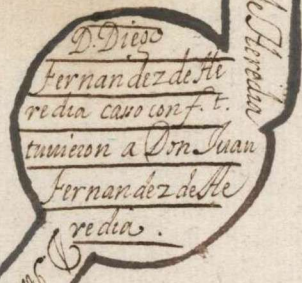 D. Diego
Fernandez de He
redia caso con f. t.
tuuieron a Don Juan
Fernandez de He
redia.
de Heredia